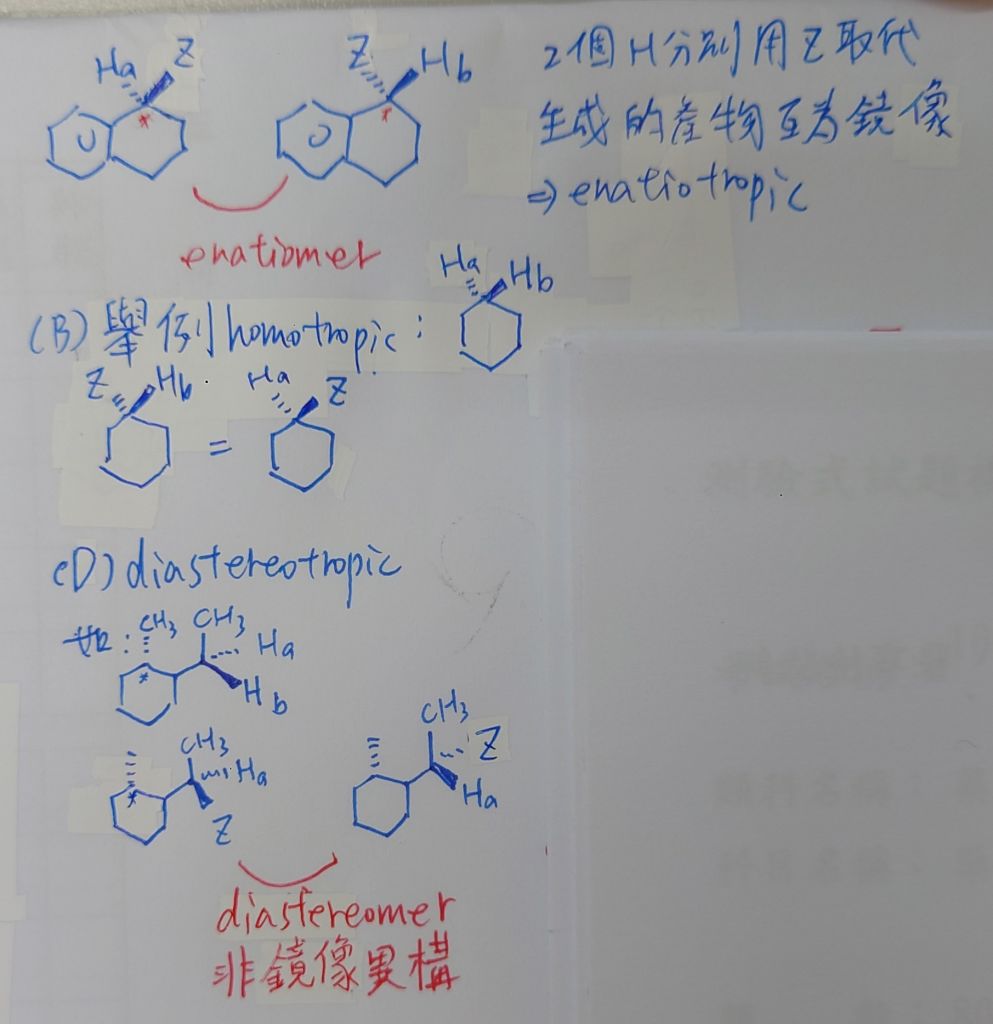 Ha Z
*
Z Hb
*
2個H分別用Z取代
生成的產物互為鏡像
⇒ enatiotropic
enatiomer
Ha Hb
(B) 舉例homotropic:
Z Hb
=
Ha Z
(D) diastereotropic
如:
CH3 CH3
Ha
*
Hb
CH3
Ha
*
Z
CH3
Z
Ha
diastereomer
非鏡像異構